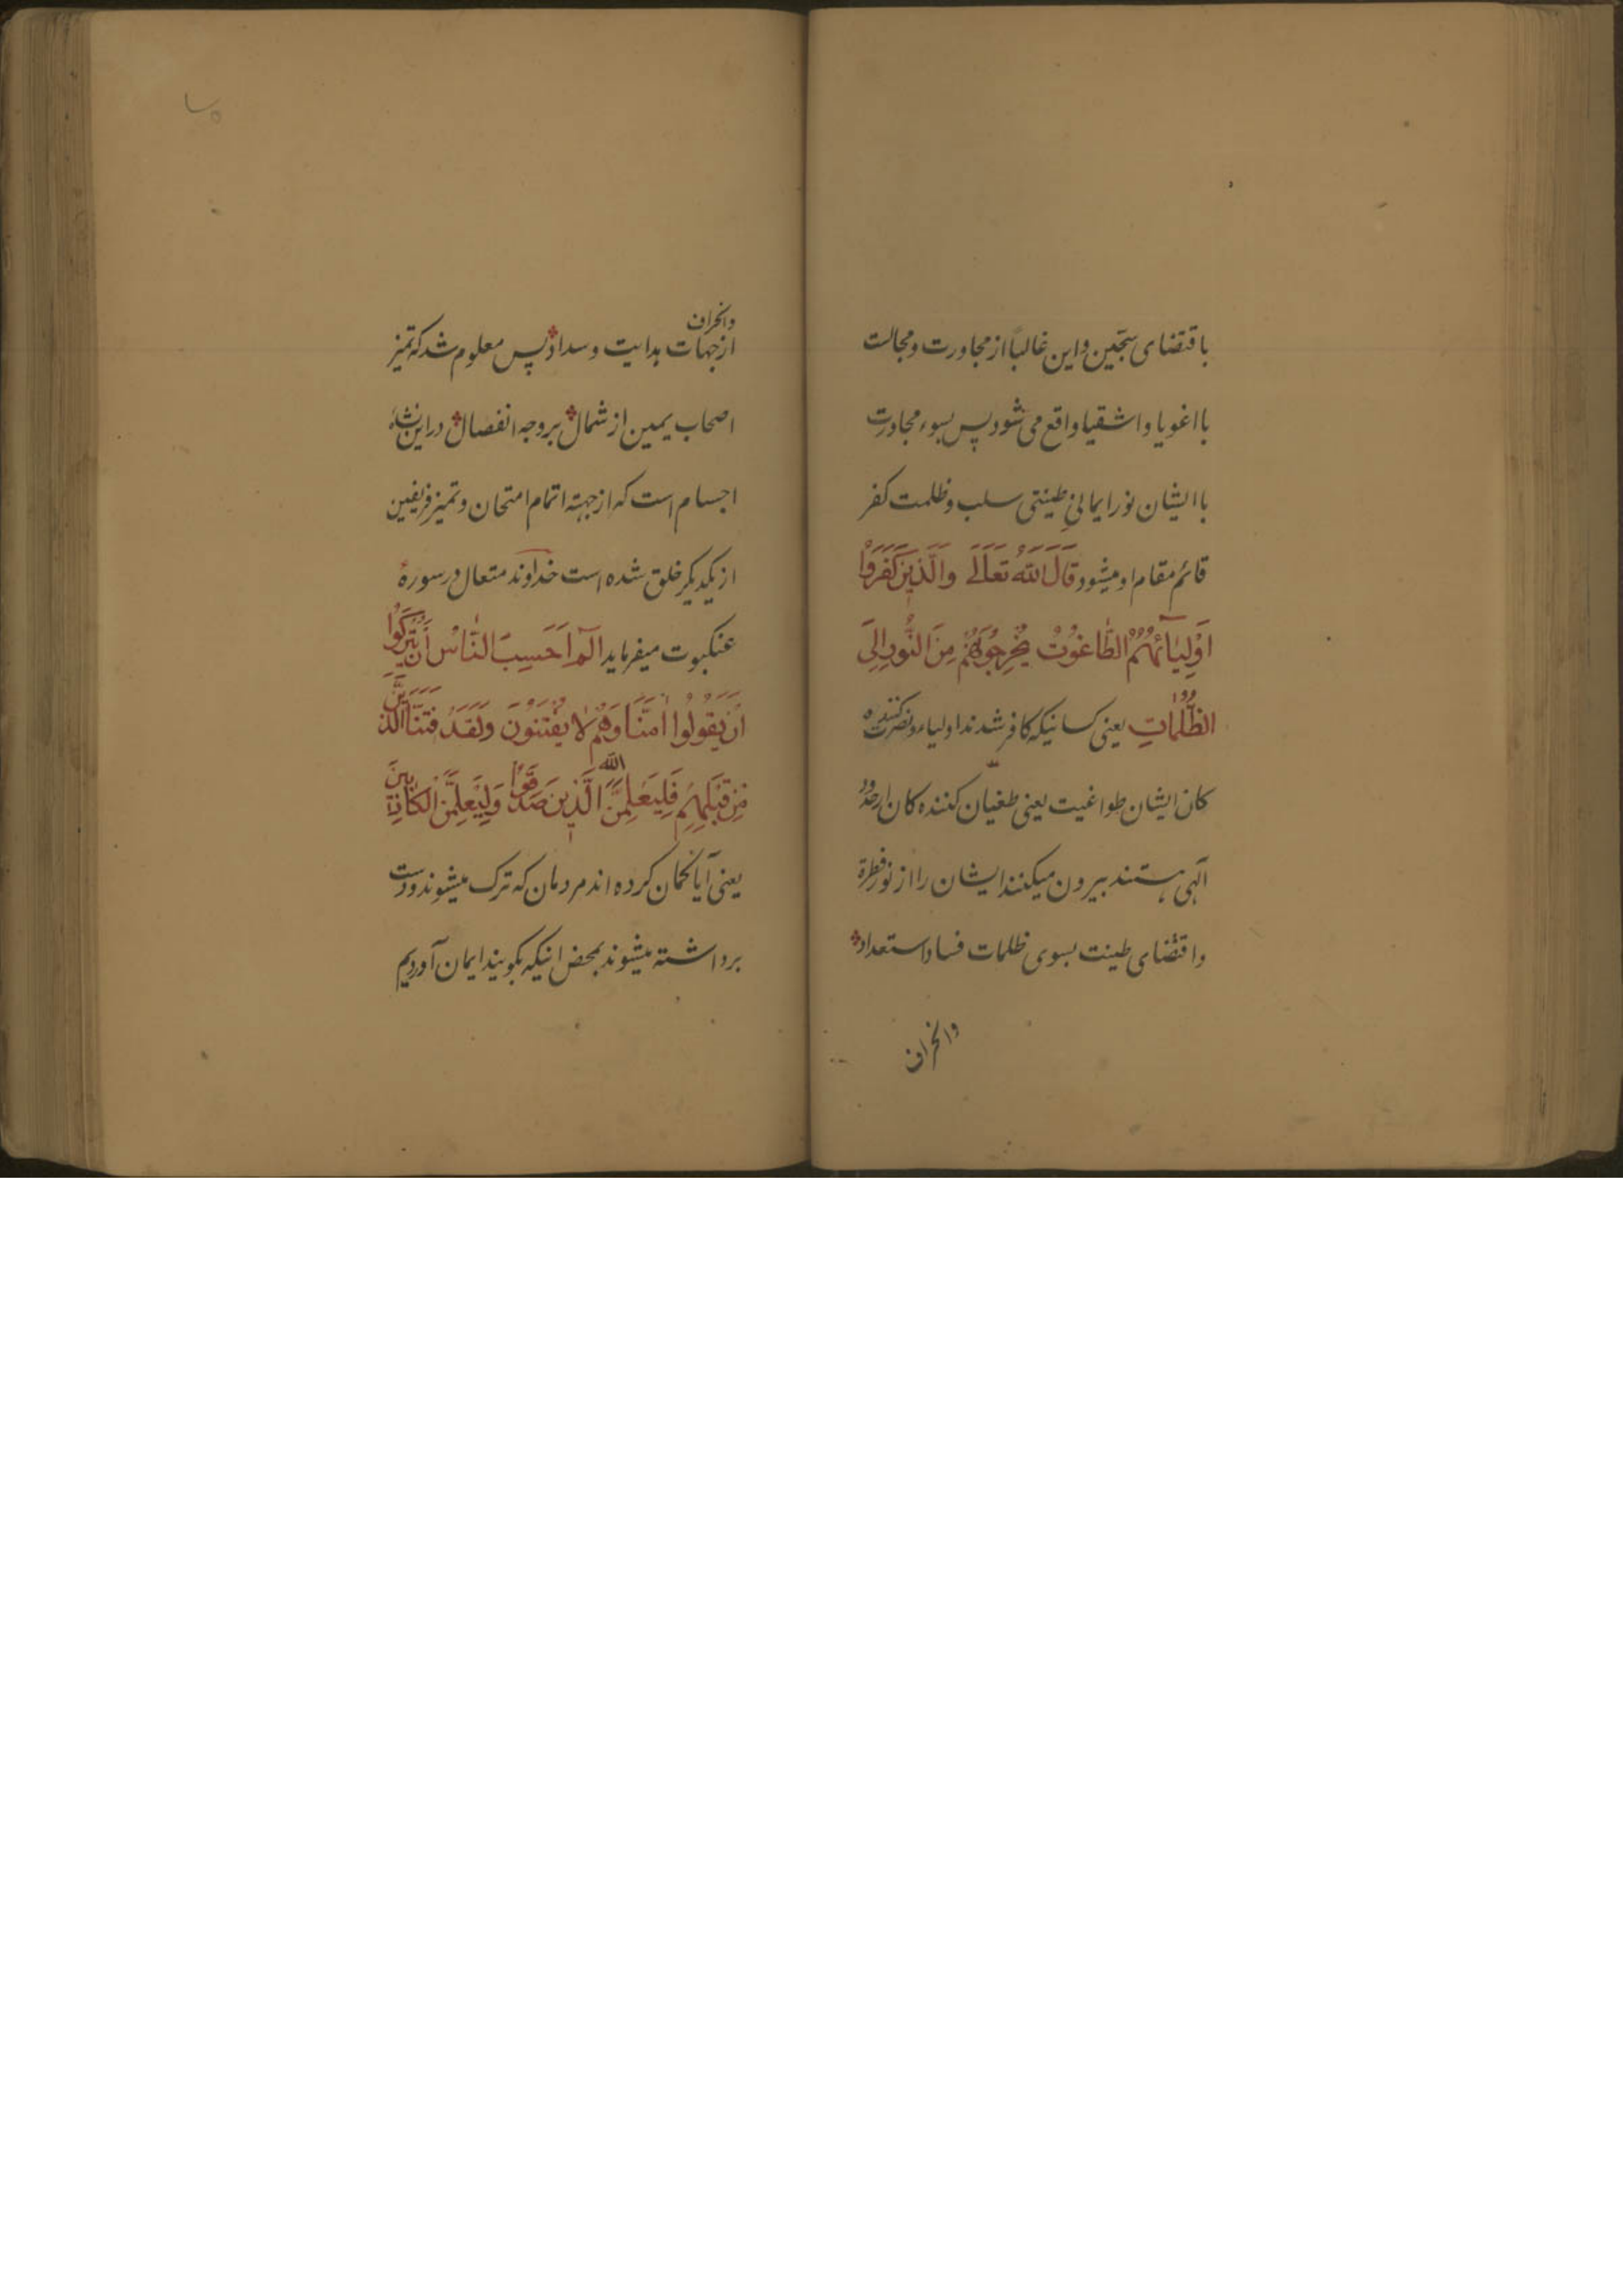 باقتضای سجّین و این غالباً از مجاورت و مجالست
با اغویا و اشقیا واقع می شود پس بسوء مجاورت
با ایشان نور ایمانیِ طینتی سلب و ظلمت کفر
قائم مقام او میشود قَالَ اللّهُ تَعَالَی وَالَّذینَ کَفَرُوا
اَوْلِیٰآئُهُمُ الطّٰاغُوتُ یُخْرِجُونَهُمْ مِنَ النُّورِ اِلَی
الظُّلُمٰاتِ یعنی کسانیکه کافر شدند اولیاء و نصرت کننده
کان ایشان طواغیت یعنی طغیان کننده کان از حدود
آلهی هستند بیرون میکنند ایشان را از نور فطرة
واقتضای طینت بسوی ظلمات فساد استعداد
وانحراف
وانحراف
از جهات بدایت و سداد پس معلوم شد که تمیز
اصحاب یمین از شمال بر وجه انفصال در این نشاۀ
اجسام است که از جهتە اتمام امتحان و تمیز فریقین
از یکدیگر خلق شده است خداوند متعال در سورۀ
عنکبوت میفرماید الٓمٓ اَحَسِبَ النّٰاسُ اَنْ یُتْرَکُوا
اَنْ یَقُولُوا اٰمَنّٰا وَهُمْ لٰا یُفْتَنُونَ وَلَقَدْ فَتَنَّا الَّذینَ
مِنْ قَبْلِهِمْ فَلَیَعْلَمَنَّ اللّه الَّذینَ صَدَقُوا وَلَیَعْلَمَنَّ الْکٰاذِبینَ
یعنی آیا گمان کرده اند مردمان که ترک میشوند و دست
برداشته میشوند بمحض اینکه بگویند ایمان آوردیم